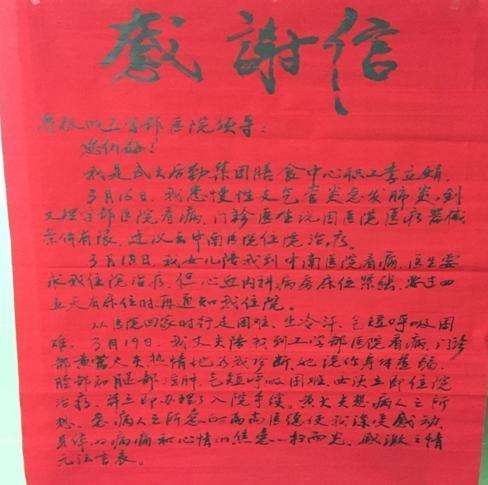 感謝信
尊敬的工学部医院领导：
您们好！
我是武大后勤集团膳食中心职工李立娟。
3月16日，我患慢性支气管炎急发肺炎，到
文理学部医院看病，门诊医生说因医院医疗器械
条件有限，建议去中南医院住院治疗。
3月18日，我女儿陪我到中南医院看病，医生要
求我住院治疗，但心血内科，病房床位紧张，要等四
五天后床位时再通知我住院。
从医院回家时行走困难，出冷汗，气短呼吸困
难，3月19日，我丈夫陪我到工学部医院看病，门诊
部黄大夫热情地为我诊断，她说你身体
脸部和腿部浮肿，气短呼吸困难，必须立即住院
治疗，并立即办理了入院手续。黄大夫想病人之所
想，急病人之所急的高尚医德使我深受感动，
具体以病痛和心情的焦急一扫而光，感激之情
无法言表。